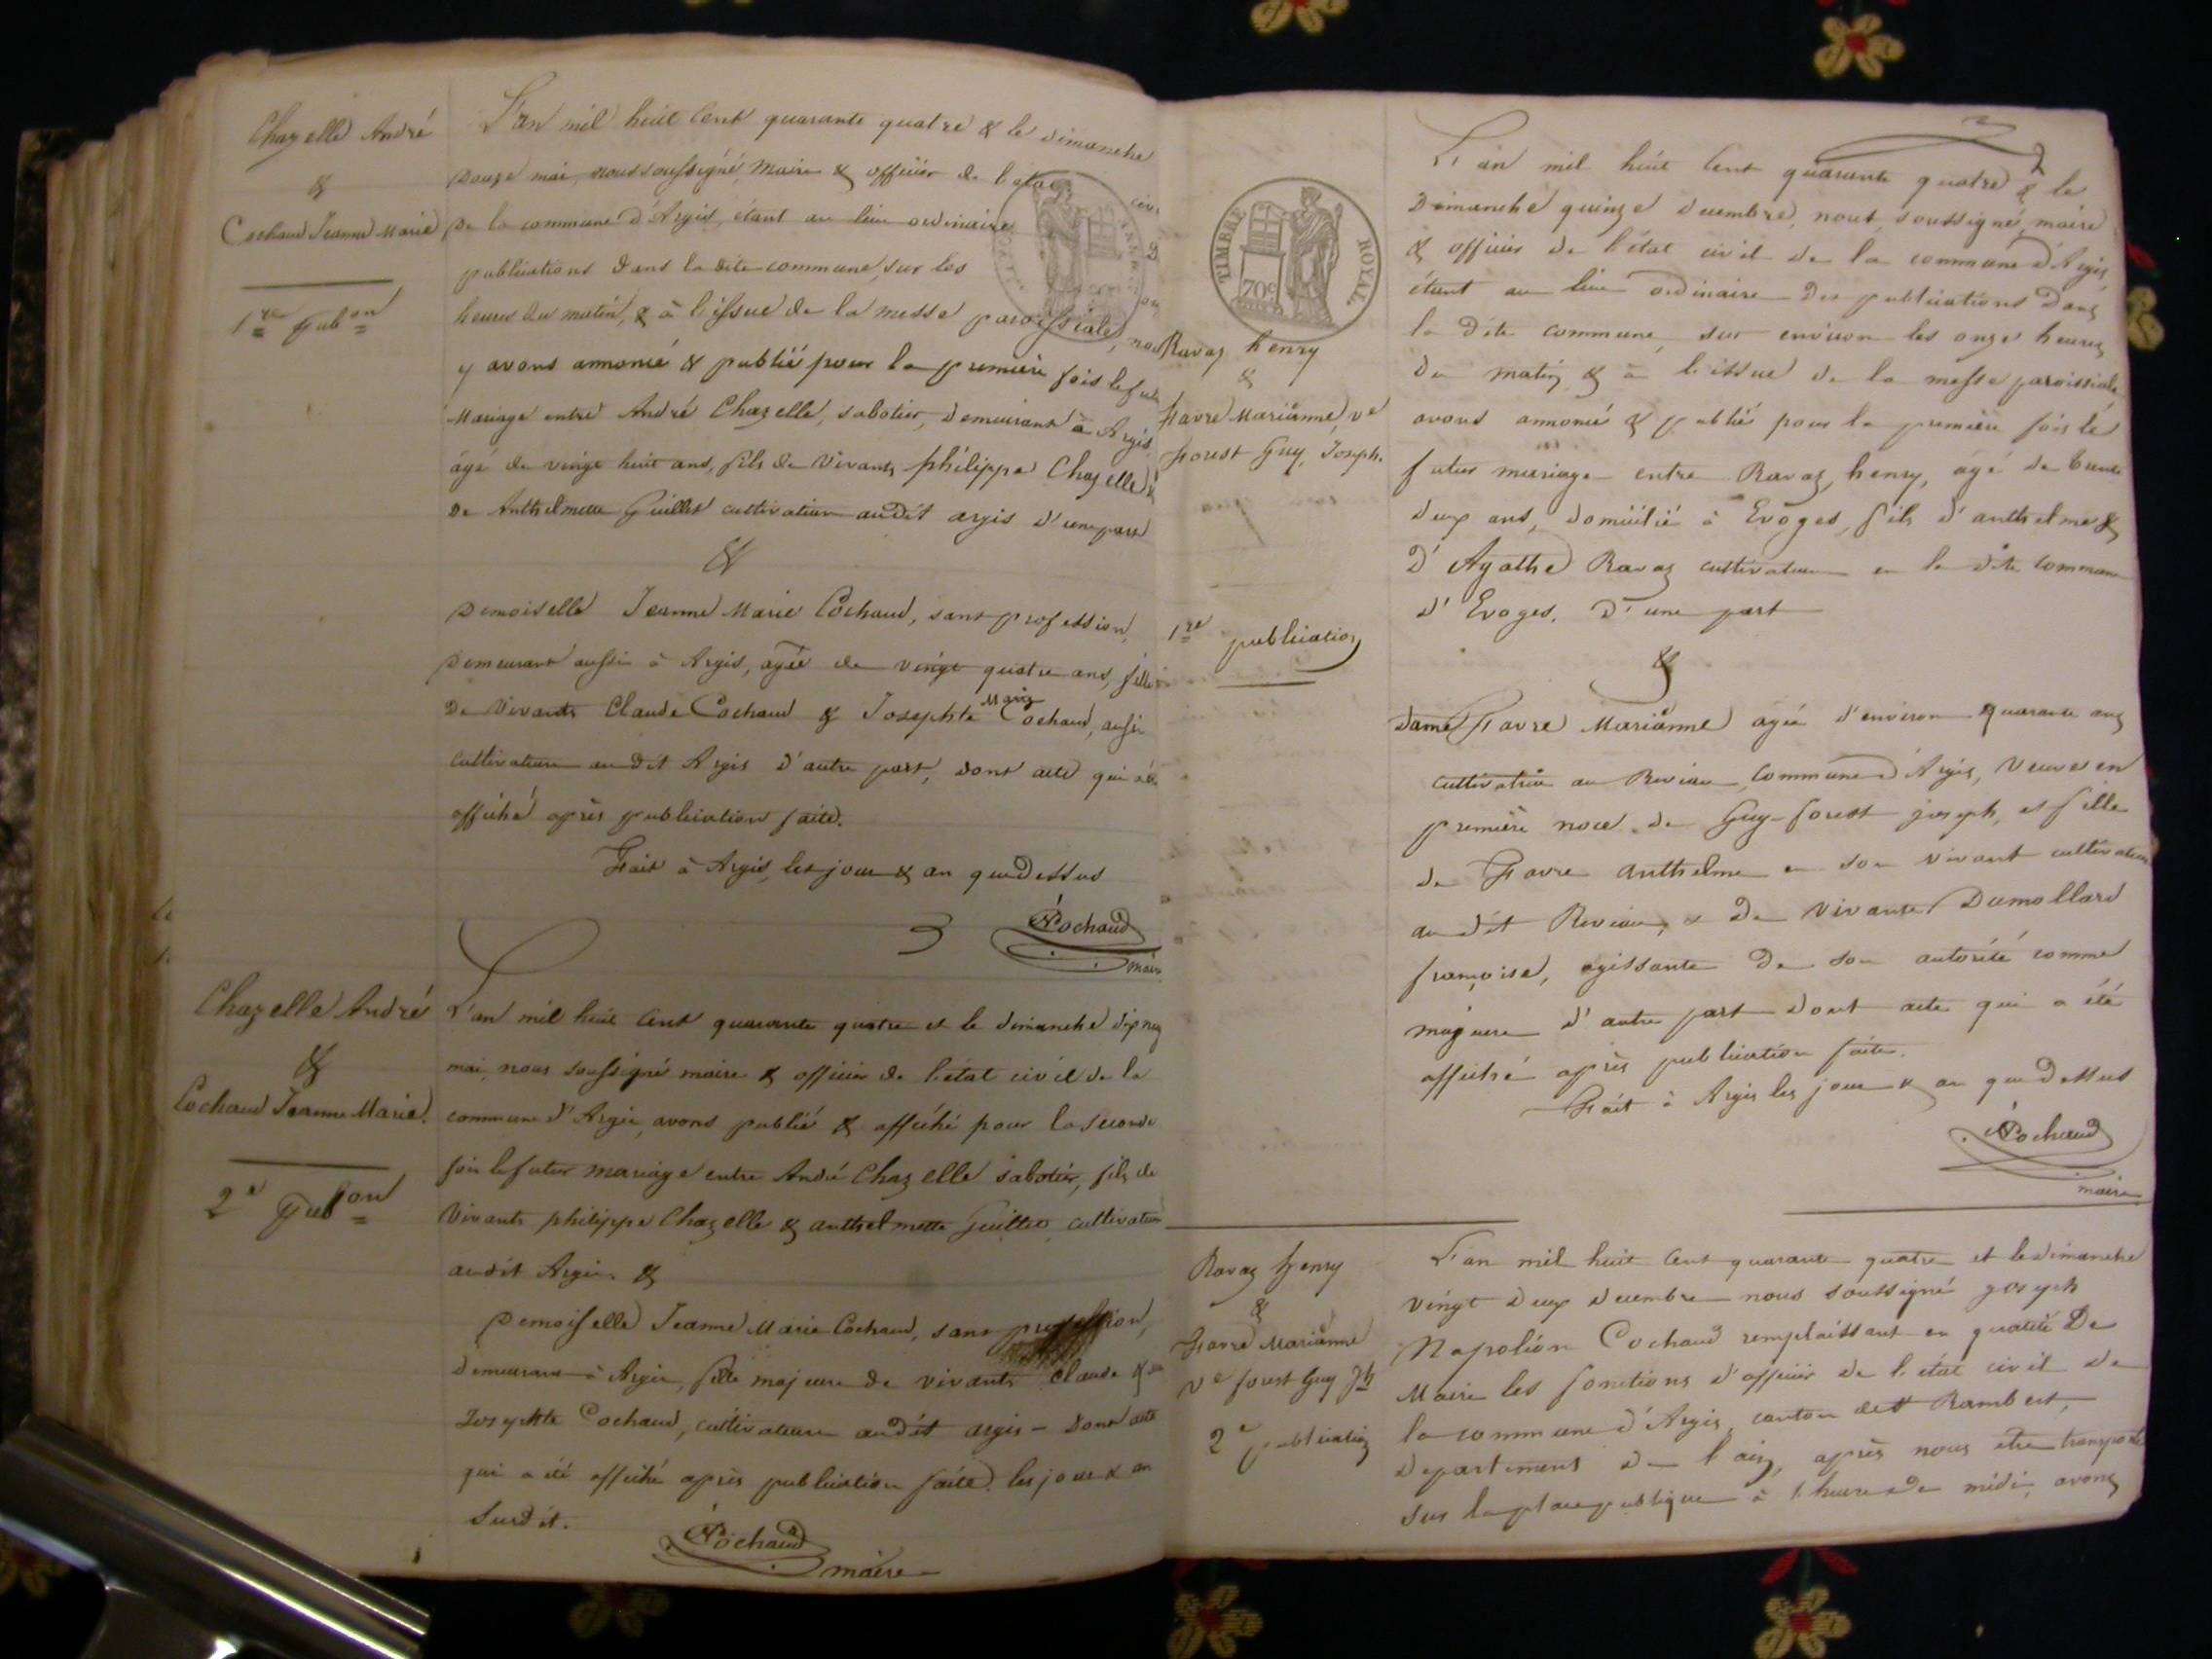 Chazelle André
&
Cochaud Jeanne Marie
1re pubon
L'an mil huit cent quarante quatre & le dimanche
douze mai, nous soussigné, maire & officier de l'état civ
de la commune d'Argis, étant au lieu ordinaire
publications dans la dite commune, sur les
heures du matin, & à l'issue de la messe paroissiale, no
y avons annoncé & publié pour la première fois le fut
mariage entre André Chazelle, sabotier, demeurant à Argis,
âgé de vingt huit ans, fils de vivants philippe Chazelle &
de Anthelmette Guillet cultivateurs audit argis d'une part
&
Demoiselle Jeanne Marie Cochaud, sans profession,
demeurant aussi à Argis, agée de vingt quatre ans, fille
de vivants Claude Cochaud & Josephte Marie Cochaud, aussi
cultivateurs au dit Argis d'autre part, dont acte qui a été
affiché après publication faite.
Fait à Argis, les jour & an que dessus
NCochaud
maire
Chazelle André
&
Cochaud Jeanne Marie.
2e pubon
L'an mil huit cent quarante quatre et le dimanche dix neuf
mai, nous soussigné maire & officier de l'état civil de la
commune d'Argis, avons publié & affiché pour la seconde
fois le futur mariage entre André Chazelle sabotier, fils de
vivants philippe Chazelle & anthelmette Guillet, cultivateurs
audit Argis &
Demoiselle Jeanne Marie Cochaud, sans profession,
demeurant à Argis, fille majeure de vivants Claude & de
Josephte Cochaud, cultivateurs audit argis - dont acte
qui a été affiché après publication faite. les jour & an
susdit.
NCochaud
maire
2
TIMBRE ROYAL
70c
Ravaz henry
&
Favre Marianne, ve
Forest Guy, Joseph.
1re publication
L'an mil huit cent quarante quatre & le
Dimanche quinze decembre, nous, soussigné, maire
& officier de l'état civil de la commune d'Argis,
étant au lieu ordinaire des publications dans
la dite commune, sur environ les onze heures
du matin, & à l'issue de la messe paroissiale
avons annoncé & publié pour la première fois le
futur mariage entre Ravaz, henry, âgé de trente
deux ans, domicilié à Evoges, fils d'anthelme &
d'Agathe Ravaz cultivateurs en la dite commune
d'Evoges, d'une part
&
dame Favre Marianne agée d'environ quarante ans
cultivatrice au Reviau, commune d'Argis, veuve en
première noce de Guy-forest joseph, et fille
de Favre anthelme en son vivant cultivateur
au dit Reviau, & de vivante Dumollard
françoise, agissante de son autorité comme
majeure d'autre part dont acte qui a été
affiché après publication faite.
Fait à Argis les jour & an que dessus
NCochaud
maire
Ravaz henry
&
Favre Marianne
ve forest Guy Jh
2e publication
L'an mil huit cent quarante quatre et le dimanche
vingt deux decembre nous soussigné joseph
Napoléon Cochaud remplaissant en qualité de
Maire les fonctions d'officier de l'état civil de
la commune d'Argis, canton de St Rambert,
departement de l'ain, après nous être transporté
sur la place publique à 1 heure de midi, avons